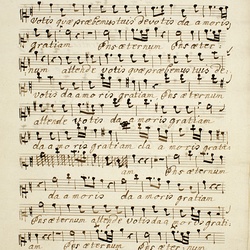 votis quæ præbemus tuis devotis da amoris
gratiam Ens æternum Ens æter:
num attende votis quæ præbemus tuis de:
votis da amoris gratiam Ens æternum
attende votis da amoris gratiam
da amoris gratiam da amoris grati:
am Ens æternum
da amoris da amoris gratiam
Ens æternum attende votis da amoris gra:
tiam Ens æternum Ens æter: num